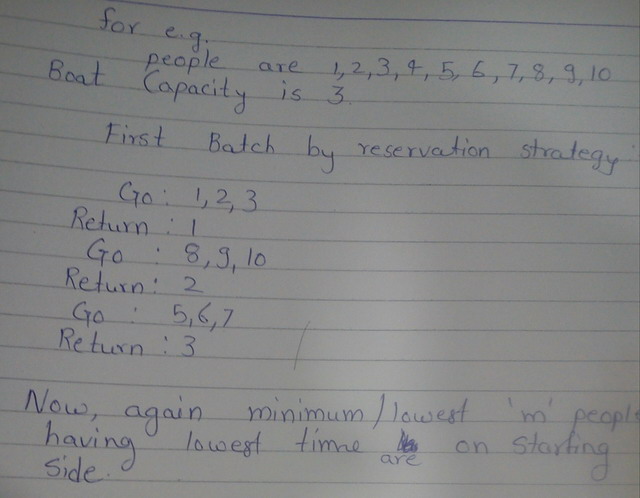 for e.g.
people are 1,2,3,4,5,6,7,8,9,10
Boat Capacity is 3.
First Batch by reservation strategy
Go: 1,2,3
Return: 1
Go : 8,9,10
Return: 2
Go : 5,6,7
Return: 3
Now, again minimum/lowest 'm' people
having lowest time are on starting
side.